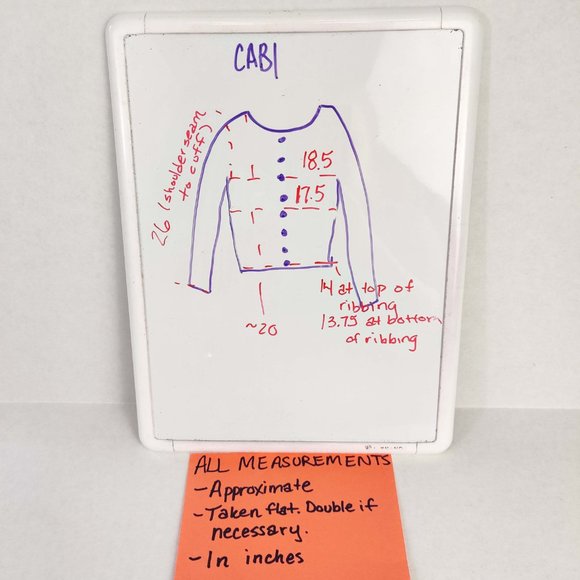 CABI
26 (shoulder seam
to cuff)
18.5
17.5
14 at top of
ribbing
13.75 at bottom
of ribbing
~20
ALL MEASUREMENTS
-Approximate
-Taken flat. Double if
necessary.
-In inches